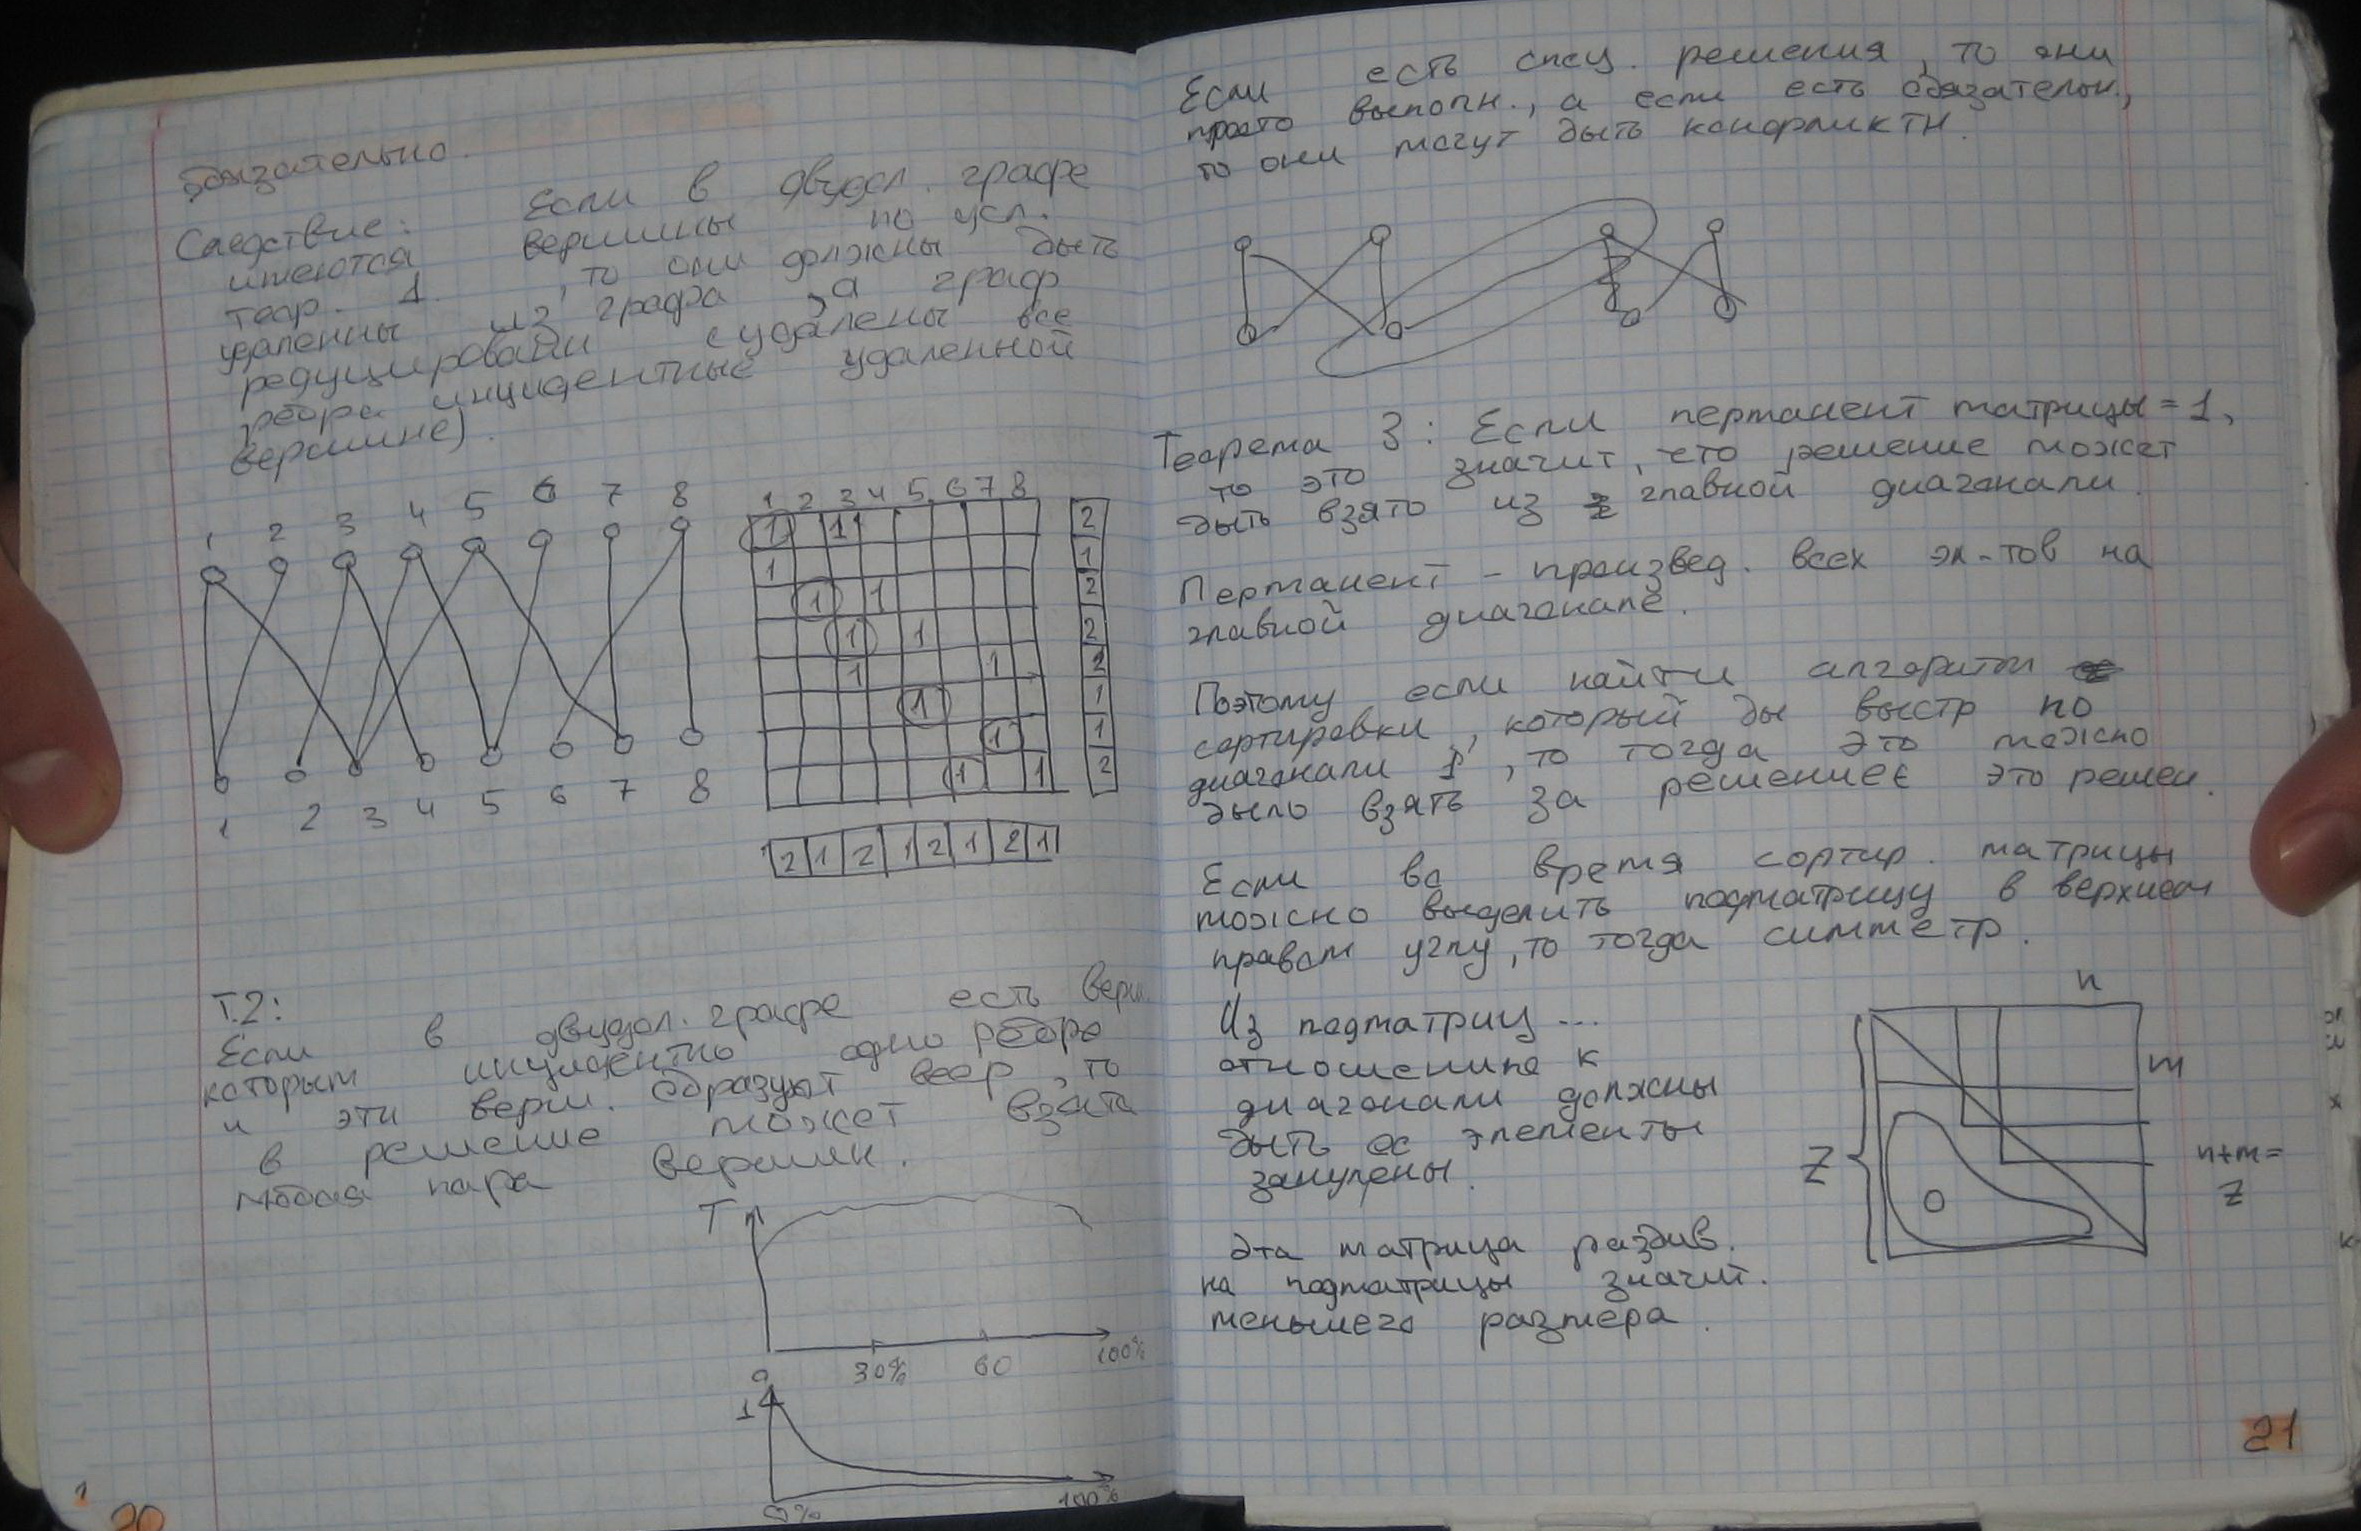 обязательно.
Следствие: Если в двудол. графе
имеются вершины по усл.
теор. 1, то они должны быть
удаленны из графа, а граф
редуцировать (удалены все
ребра инцидентные удаленной
вершине).
1 2 3 4 5 6 7 8
1 2 3 4 5 6 7 8
1 2 3 4 5 6 7 8
1 1 2
1 1
1 1 2
1 1 2
1 1 2
1 1
1 1
1 1 2
2 1 2 1 2 1 2 1
Т.2:
Если в двудол. графе есть верш.
которым инцидентно одно ребро
и эти верш. образуют веер, то
в решение может взята
любая пара вершин.
T
0 30% 60 100%
1
0% 100%
20
Если есть спец. решения, то они
просто выполн., а если есть обязательн.,
то они могут быть конфликтн.
Теорема 3: Если перманент матрицы = 1,
то это значит, что решение может
быть взято из главной диагонали.
Перманент - произвед. всех эл-тов на
главной диагонале.
Поэтому если найти алгоритм
сортировки, который бы выстр по
диагонали 1, то тогда это можно
было взять за решение это решен.
Если во время сортир. матрицы
можно выделить подматрицу в верхнем
правом углу, то тогда симметр.
Из подматриц ...
отношению к
диагонали должны
быть ее элементы
занулены.
n
m
Z
0
n+m=
Z
Эта матрица разбив.
на подматрицы значит.
меньшего размера.
21